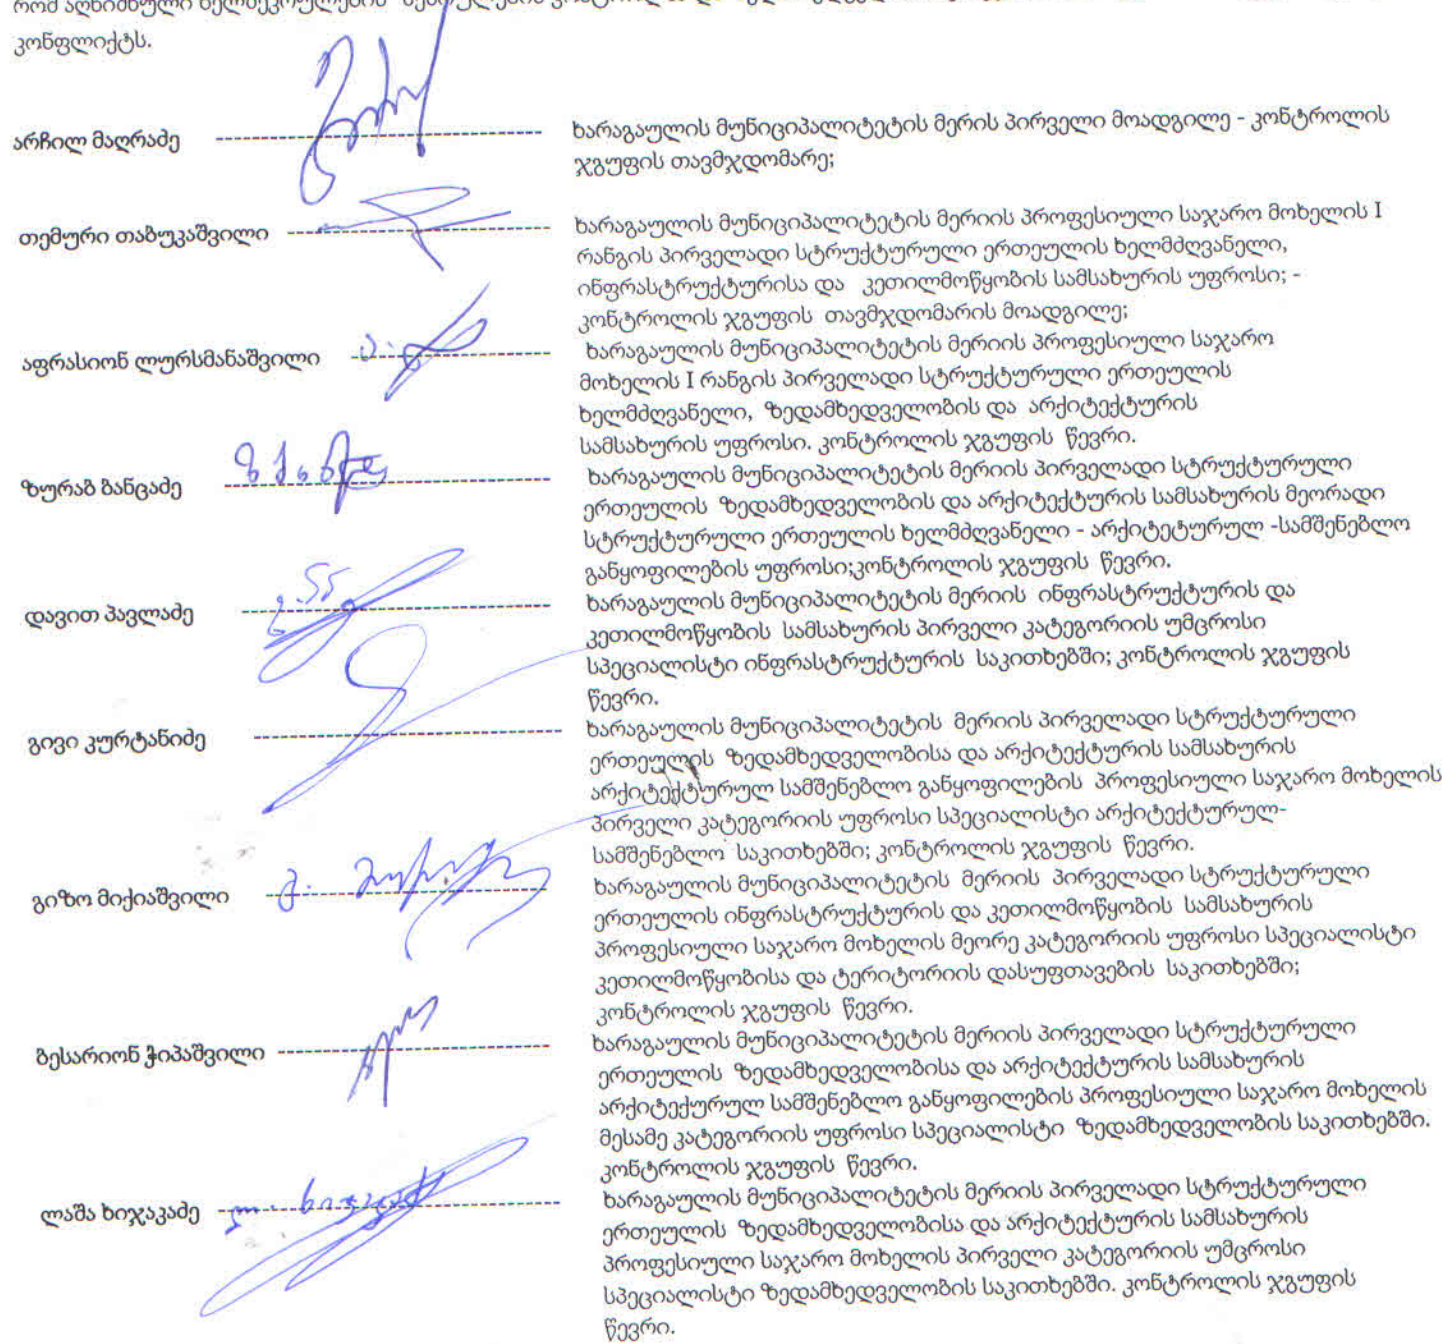 კონფლიქტს.
არჩილ მაღრაძე ხარაგაულის მუნიციპალიტეტის მერის პირველი მოადგილე - კონტროლის
ჯგუფის თავმჯდომარე;
თემური თაბუკაშვილი ხარაგაულის მუნიციპალიტეტის მერიის პროფესიული საჯარო მოხელის I
რანგის პირველადი სტრუქტურული ერთეულის ხელმძღვანელი,
ინფრასტრუქტურისა და კეთილმოწყობის სამსახურის უფროსი; -
კონტროლის ჯგუფის თავმჯდომარის მოადგილე;
აფრასიონ ლურსმანაშვილი ხარაგაულის მუნიციპალიტეტის მერიის პროფესიული საჯარო
მოხელის I რანგის პირველადი სტრუქტურული ერთეულის
ხელმძღვანელი, ზედამხედველობის და არქიტექტურის
სამსახურის უფროსი. კონტროლის ჯგუფის წევრი.
ზურაბ ბანცაძე ხარაგაულის მუნიციპალიტეტის მერიის პირველადი სტრუქტურული
ერთეულის ზედამხედველობის და არქიტექტურის სამსახურის მეორადი
სტრუქტურული ერთეულის ხელმძღვანელი - არქიტეტურულ -სამშენებლო
განყოფილების უფროსი;კონტროლის ჯგუფის წევრი.
დავით პავლაძე ხარაგაულის მუნიციპალიტეტის მერიის ინფრასტრუქტურის და
კეთილმოწყობის სამსახურის პირველი კატეგორიის უმცროსი
სპეციალისტი ინფრასტრუქტურის საკითხებში; კონტროლის ჯგუფის
წევრი.
გივი კურტანიძე ხარაგაულის მუნიციპალიტეტის მერიის პირველადი სტრუქტურული
ერთეულის ზედამხედველობისა და არქიტექტურის სამსახურის
არქიტექტურულ სამშენებლო განყოფილების პროფესიული საჯარო მოხელის
პირველი კატეგორიის უფროსი სპეციალისტი არქიტექტურულ-
სამშენებლო საკითხებში; კონტროლის ჯგუფის წევრი.
გიზო მიქიაშვილი ხარაგაულის მუნიციპალიტეტის მერიის პირველადი სტრუქტურული
ერთეულის ინფრასტრუქტურის და კეთილმოწყობის სამსახურის
პროფესიული საჯარო მოხელის მეორე კატეგორიის უფროსი სპეციალისტი
კეთილმოწყობისა და ტერიტორიის დასუფთავების საკითხებში;
კონტროლის ჯგუფის წევრი.
ბესარიონ ჭიპაშვილი ხარაგაულის მუნიციპალიტეტის მერიის პირველადი სტრუქტურული
ერთეულის ზედამხედველობისა და არქიტექტურის სამსახურის
არქიტექურულ სამშენებლო განყოფილების პროფესიული საჯარო მოხელის
მესამე კატეგორიის უფროსი სპეციალისტი ზედამხედველობის საკითხებში.
კონტროლის ჯგუფის წევრი.
ლაშა ხიჯაკაძე ხარაგაულის მუნიციპალიტეტის მერიის პირველადი სტრუქტურული
ერთეულის ზედამხედველობისა და არქიტექტურის სამსახურის
პროფესიული საჯარო მოხელის პირველი კატეგორიის უმცროსი
სპეციალისტი ზედამხედველობის საკითხებში. კონტროლის ჯგუფის
წევრი.